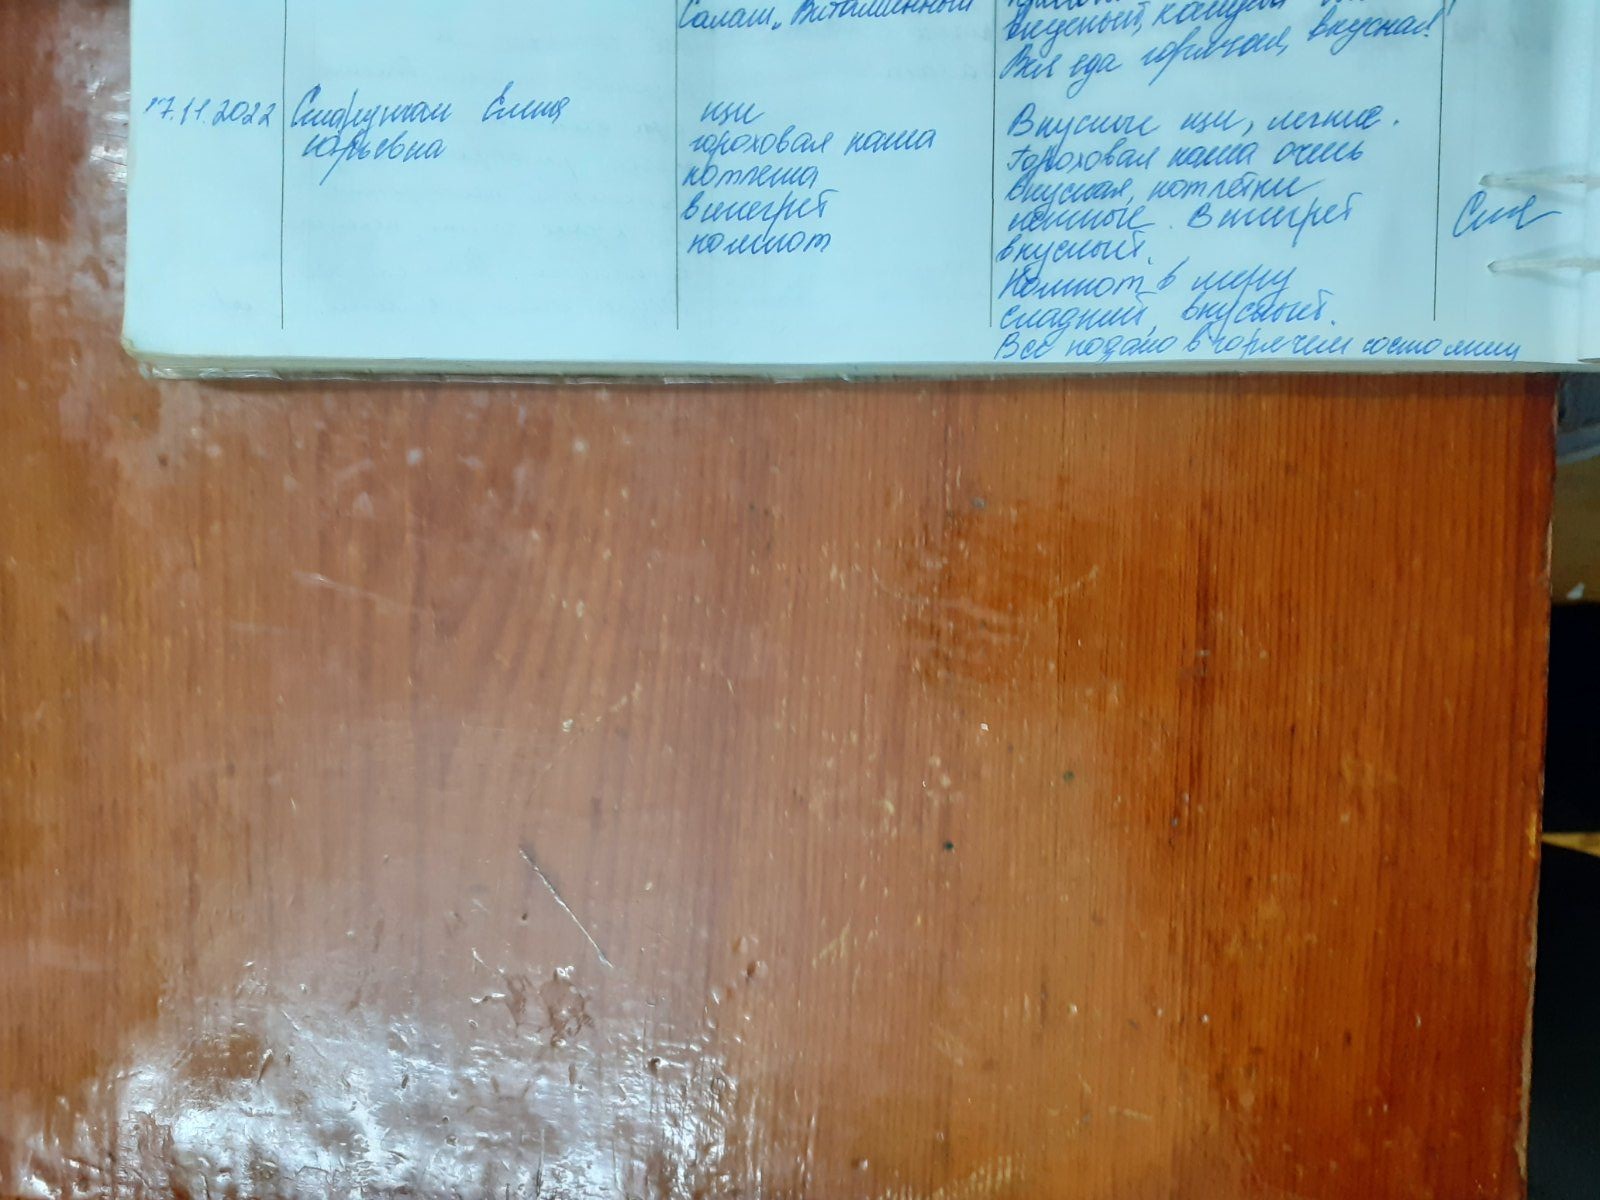 Салат „Витаминный
вкусный,
Вся еда горячая, вкусная!
17.11.2022
Юрьевна
щи
гороховая каша
котлета
винегрет
компот
Вкусные щи, легкие.
Гороховая каша очень
вкусная, котлетки
нежные. Винегрет
вкусный.
Компот в меру
сладкий, вкусный.
Все подано в горячем состоянии